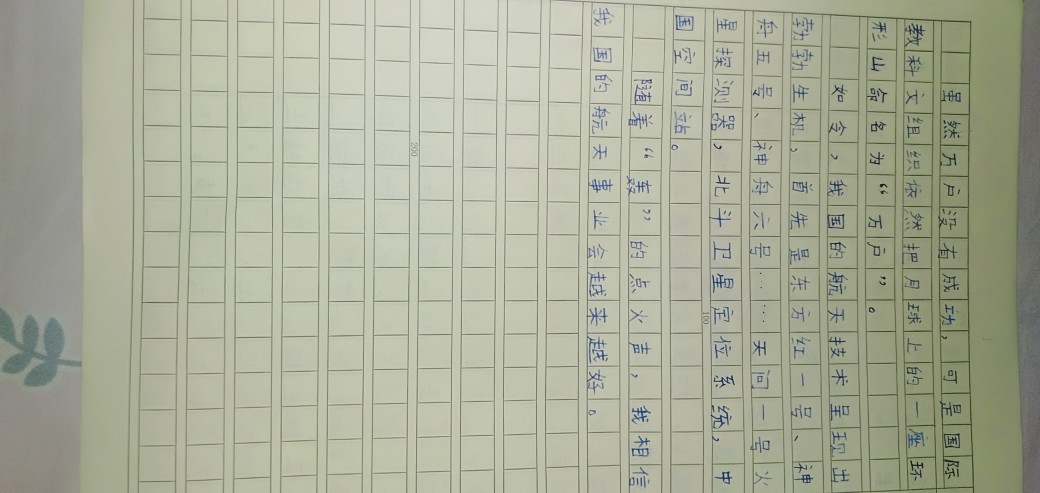 虽然万户没有成功，可是国际
教科文组织依然把月球上的一座环
形山命名为“万户”。
如今，我国的航天技术呈现出
勃勃生机，首先是东方红一号、神
舟五号、神舟六号……天问一号火
星探测器，北斗卫星定位系统，中
100
国空间站。
随着“轰”的点火声，我相信
我国的航天事业会越来越好。
200